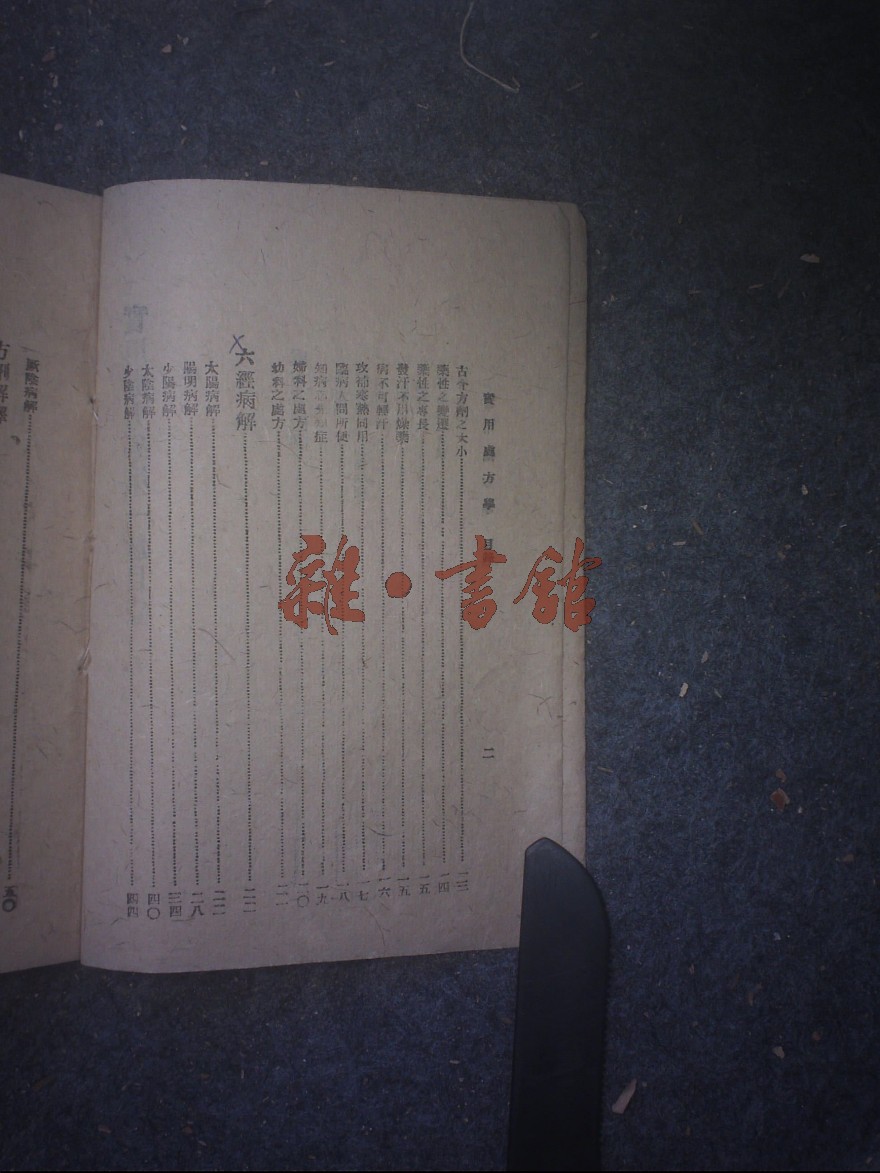 實用處方學 目 二
古今方劑之大小 一三
藥性之變遷 一四
藥性之專長 一五
發汗不用燥藥 一五
病不可輕汗 一六
攻補寒熱同用 一七
臨病人問所便 一八
知病 症 一九
婦科之處方 二〇
幼科之處方 二一
六經病解 二二
太陽病解 二二
陽明病解 二八
少陽病解 三四
太陰病解 四〇
少陰病解 四四
厥陰病解 五〇
方劑解釋
雜·書館